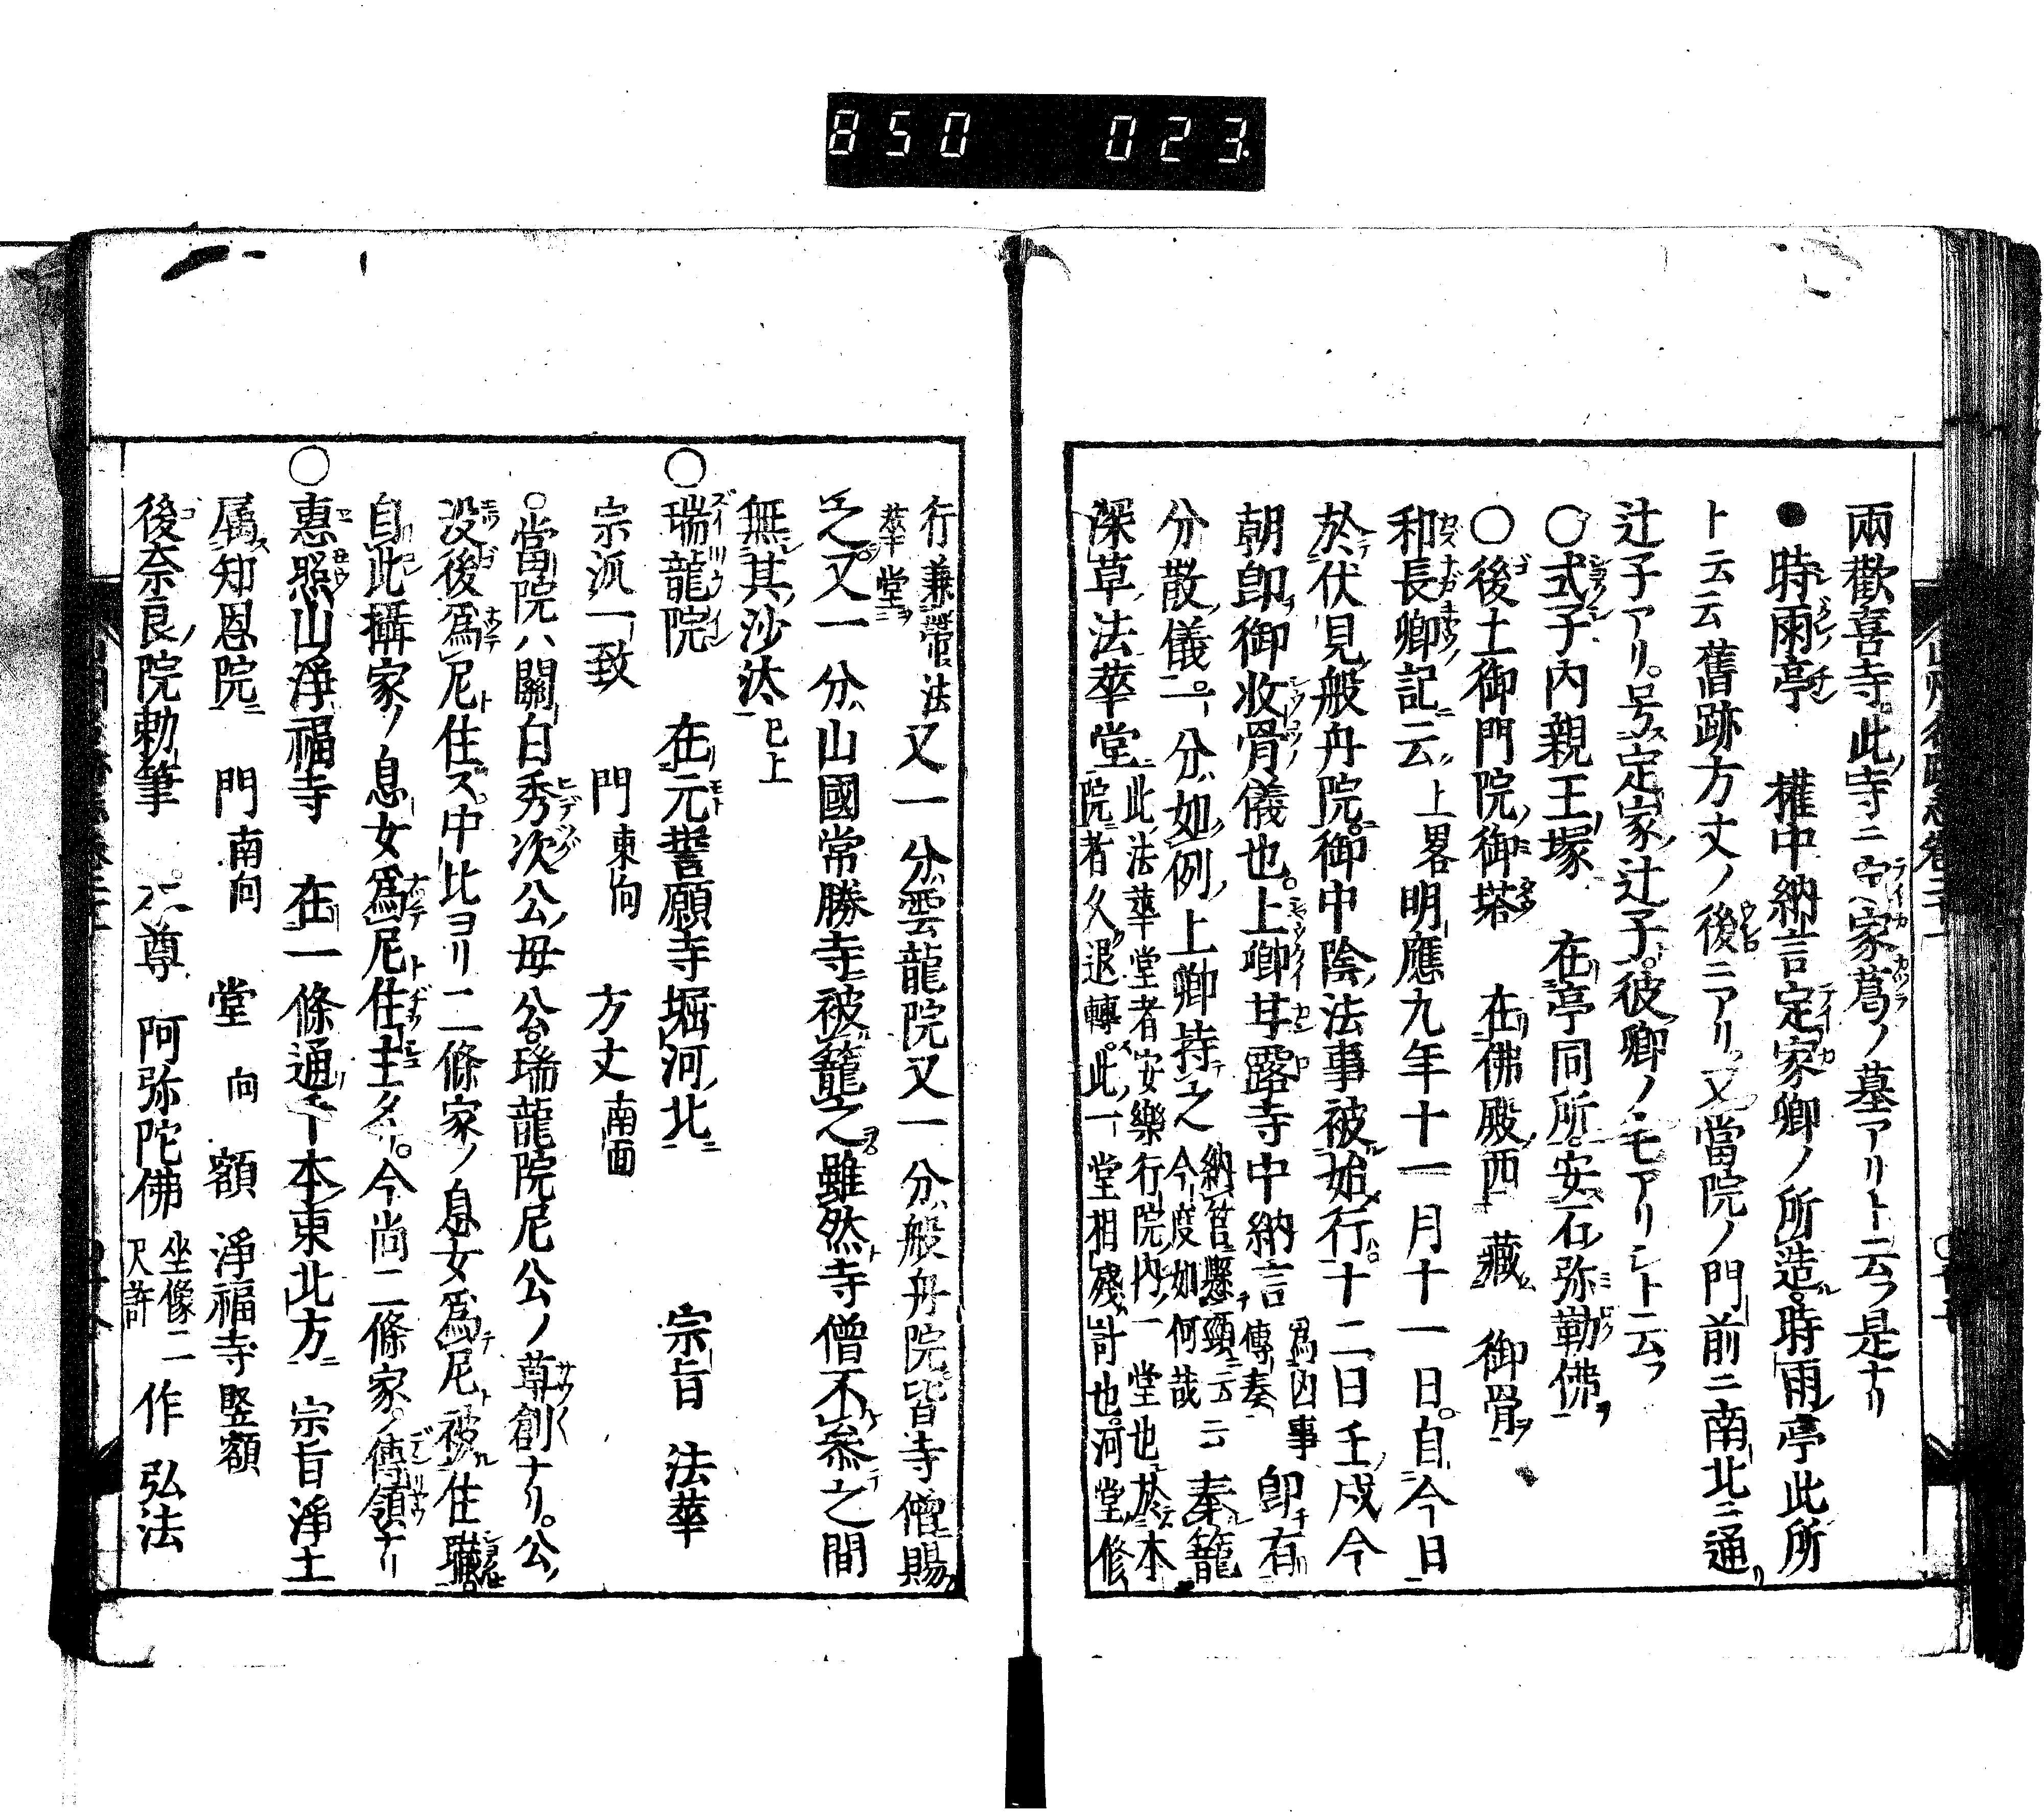 850 023
兩歡喜寺此寺ニ定家葛ノ墓アリト云フ是ナリ
●時雨亭 權中納言定家卿ノ所造時雨亭此所
ト云云舊跡方丈ノ後ニアリ又當院ノ門前ニ南北ニ通
辻子アリ号定家辻子彼卿ノ
○式子内親王塚 在亭同所安石弥勒佛
○後土御門院御塔 在佛殿西 藏御骨
和長卿記云上畧明應九年十一月十一日自今日
於伏見般舟院御中陰法事被始行十二日壬戌今
朝即御收骨儀也上卿甘露寺中納言爲凶事傳奏即有
分散儀一分如例上卿持之納筥懸頸云云今度如何哉奉籠
深草法華堂此法華堂者安樂行院内一堂也於本院者久退轉此一堂相殘計也河堂修
行兼帶法華堂又一分雲龍院又一分般舟院皆寺僧賜
之又一分山國常勝寺被籠之雖然寺僧不參之間
無其沙汰已上
○瑞龍院 在元誓願寺堀河北 宗旨 法華
宗派一致 門東向 方丈南面
○當院ハ關白秀次公母公瑞龍院尼公ノ草創ナリ公
没後爲尼住ス中比ヨリ二條家ノ息女爲尼被住職
自此攝家ノ息女爲尼住主タリ今尚二條家ノ傳領ナリ
○惠照山淨福寺 在一條通 本東北方 宗旨淨土
属知恩院 門南向 堂 向 額 淨福寺竪額
後奈良院勅筆 二尊 阿弥陀佛坐像二尺許作 弘法